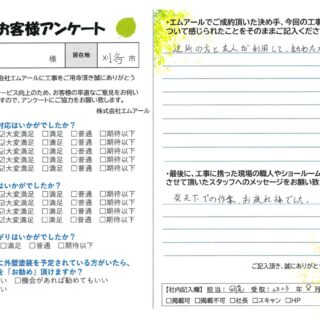 お客様アンケート
様 居在地 刈谷 市
株式会社エムアールに工事をご用命頂き誠にありがとう
サービス向上のため、お客様の率直なご意見をお伺い
すので、アンケートにご協力をお願い致します。
株式会社エムアール
対応はいかがでしたか？
☑大変満足 □満足 □普通 □期待以下
☑大変満足 □満足 □普通 □期待以下
☑大変満足 □満足 □普通 □期待以下
はいかがでしたか？
☑大変満足 □満足 □普通 □期待以下
☑大変満足 □満足 □普通 □期待以下
☑大変満足 □満足 □普通 □期待以下
がりはいかがでしたか？
□満足 □普通 □期待以下
に外壁塗装を予定されている方がいたら、
を「お勧め」頂けますか？
い □機会があれば勧めてもいい
・エムアールでご成約頂いた決め手、今回の工事
ついて感じられたことをそのままご記入くださ
近所の方と友人が利用して、勧めら
・最後に、工事に携った現場の職人やショールーム
させて頂いたスタッフへのメッセージをお願い致
炎天下での作業、お疲れ様でした。
ご記入頂き、誠にありがとう
【社内記入欄】 担当： 受取： 月
□掲載可 □掲載不可 □社長 □スキャン □HP